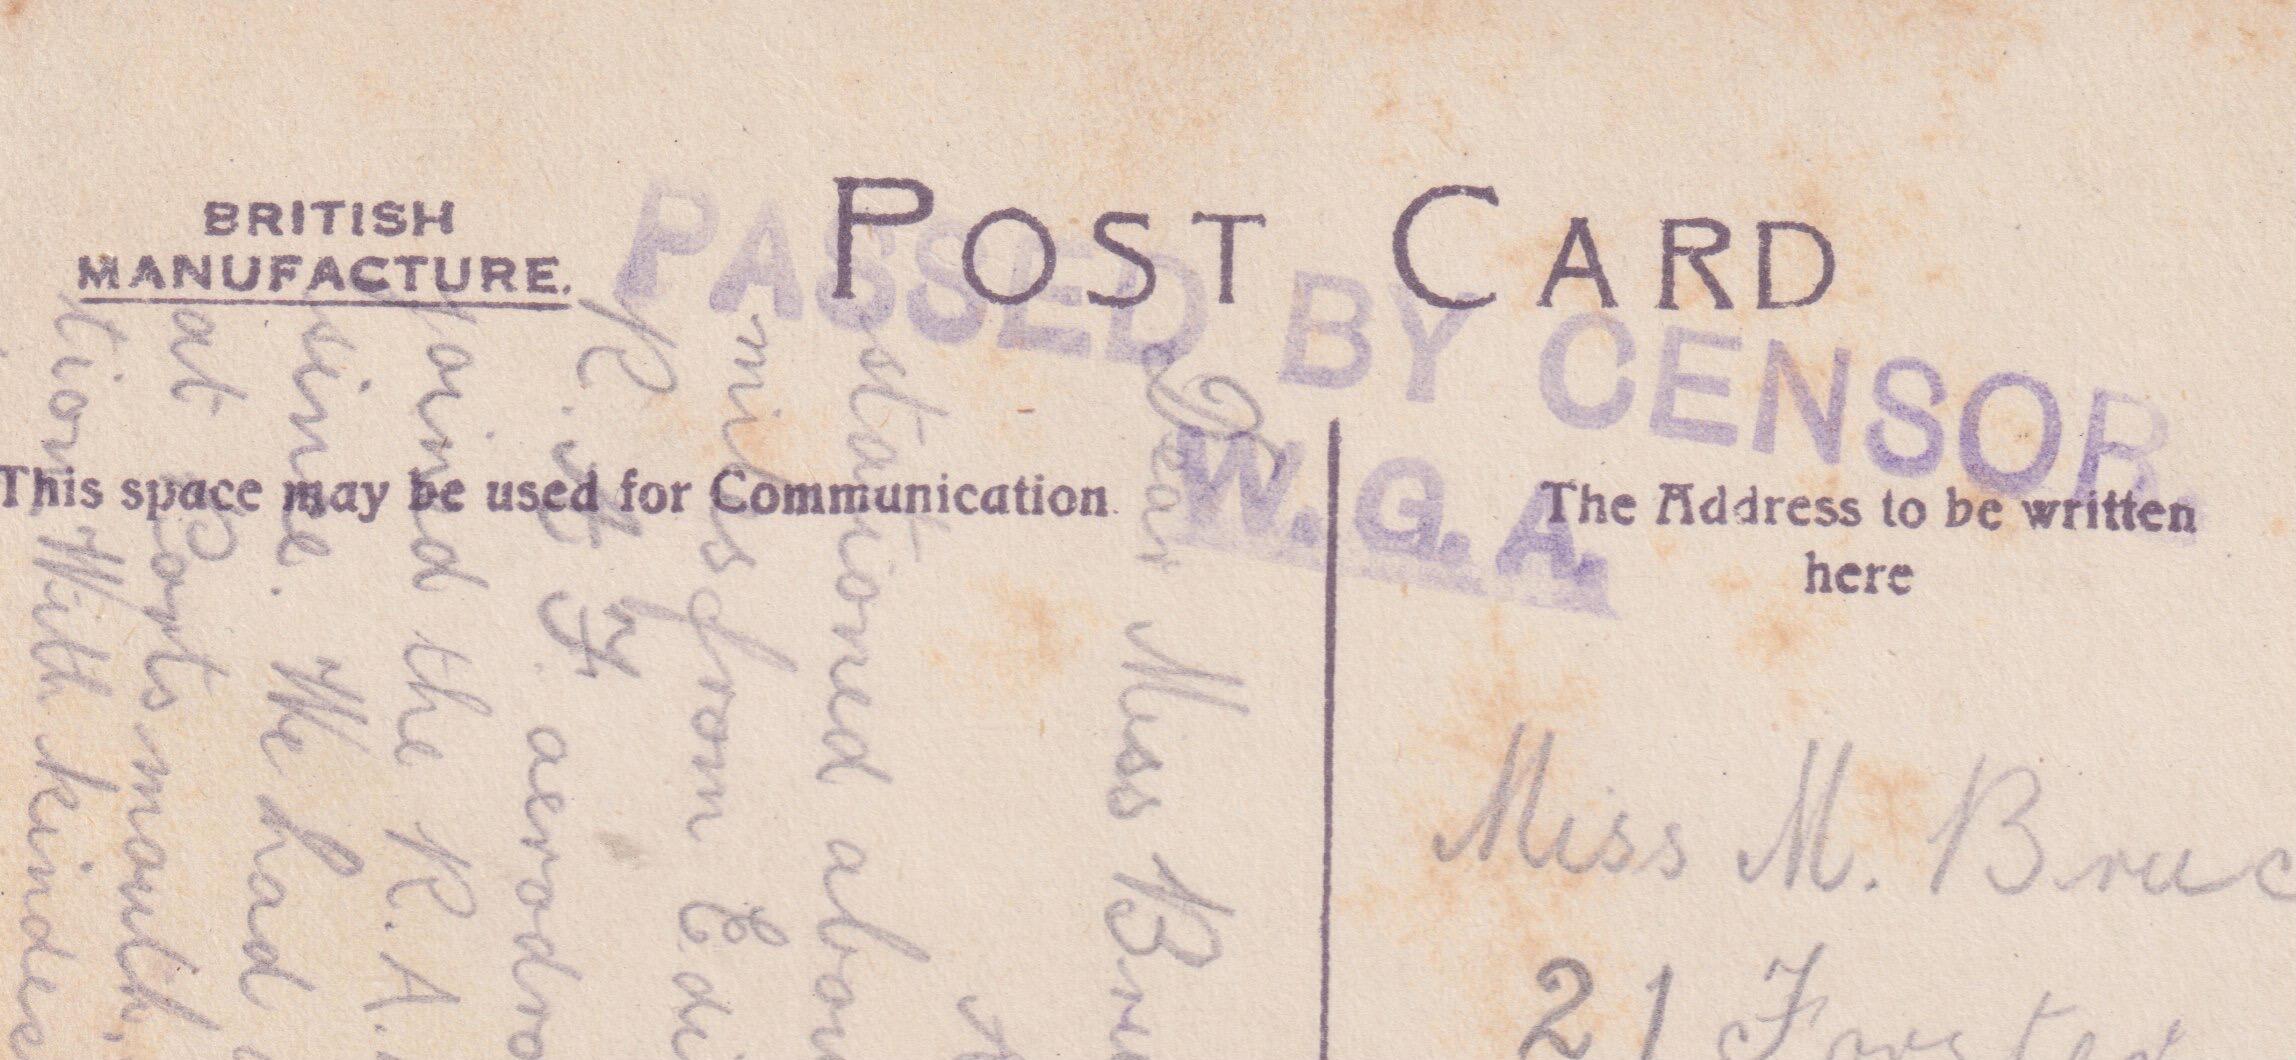 BRITISH
MANUFACTURE.
POST CARD
PASSED BY CENSOR.
W. G. A.
This space may be used for Communication.
The Address to be written
here
Dear Miss Bru
stationed abou
miles from Edi
R. A. F. aerodro
joined the R.A.
since. We had
at Portsmouth,
tion. With kindes
Miss M. Bruc
21 Forster